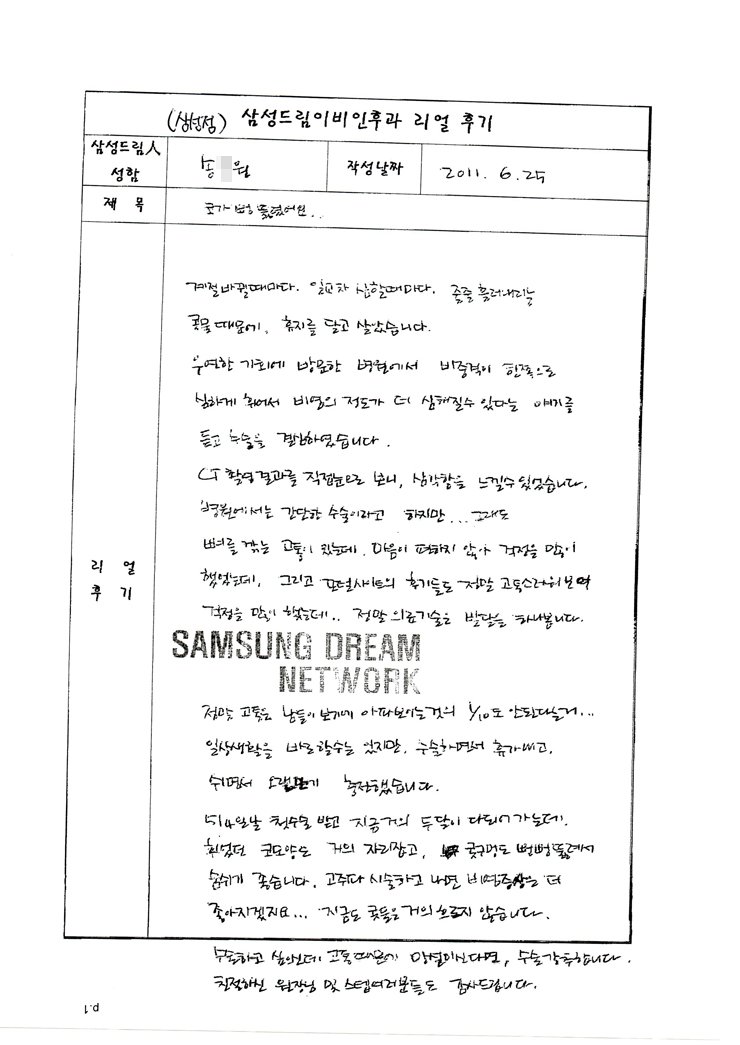 (삼성점) 삼성드림이비인후과 리얼 후기
삼성드림人 성함
송 원
작성날짜
2011. 6. 25
제 목
코가 뻥 뚫렸어요..
리 얼 후 기
계절바뀔때마다. 일교차 심할때마다. 줄줄 흘러내리는
콧물때문에, 휴지를 달고 살았습니다.
우연한 기회에 방문한 병원에서 비중격이 한쪽으로
심하게 휘어서 비염의 정도가 더 심해질수 있다는 얘기를
듣고 수술을 결심하였습니다.
CT 촬영결과를 직접눈으로 보니, 심각함을 느낄수 있었습니다.
병원에서는 간단한 수술이라고 하지만... 그래도
뼈를 깎는 고통이 있는데. 마음이 편하지 않아 걱정을 많이
했었는데, 그리고 포털사이트의 후기들도 정말 고통스러워보여
걱정을 많이 했는데.. 정말 의료기술은 발달을 하나봅니다.
SAMSUNG DREAM
NETWORK
정말 고통은 남들이 보기에 아파보이는것의 1/10도 안된다는거...
일상생활을 바로할수는 있지만, 수술하면서 휴가내고,
쉬면서 오랜만에 충전했습니다.
5/4일날 첫수술 받고 지금거의 두달이 다되어 가는데.
휘었던 코모양도 거의 자리잡고, 콧구멍도 뻥뻥뚫려서
숨쉬기 좋습니다. 고주파 시술하고 나면 비염증상은 더
좋아지겠지요... 지금도 콧물은거의 흐르지 않습니다.
수술하고 싶은데 고통때문에 망설이신다면, 수술강추합니다.
친절하신 원장님 및 스텝여러분들도 감사드립니다.
p.1